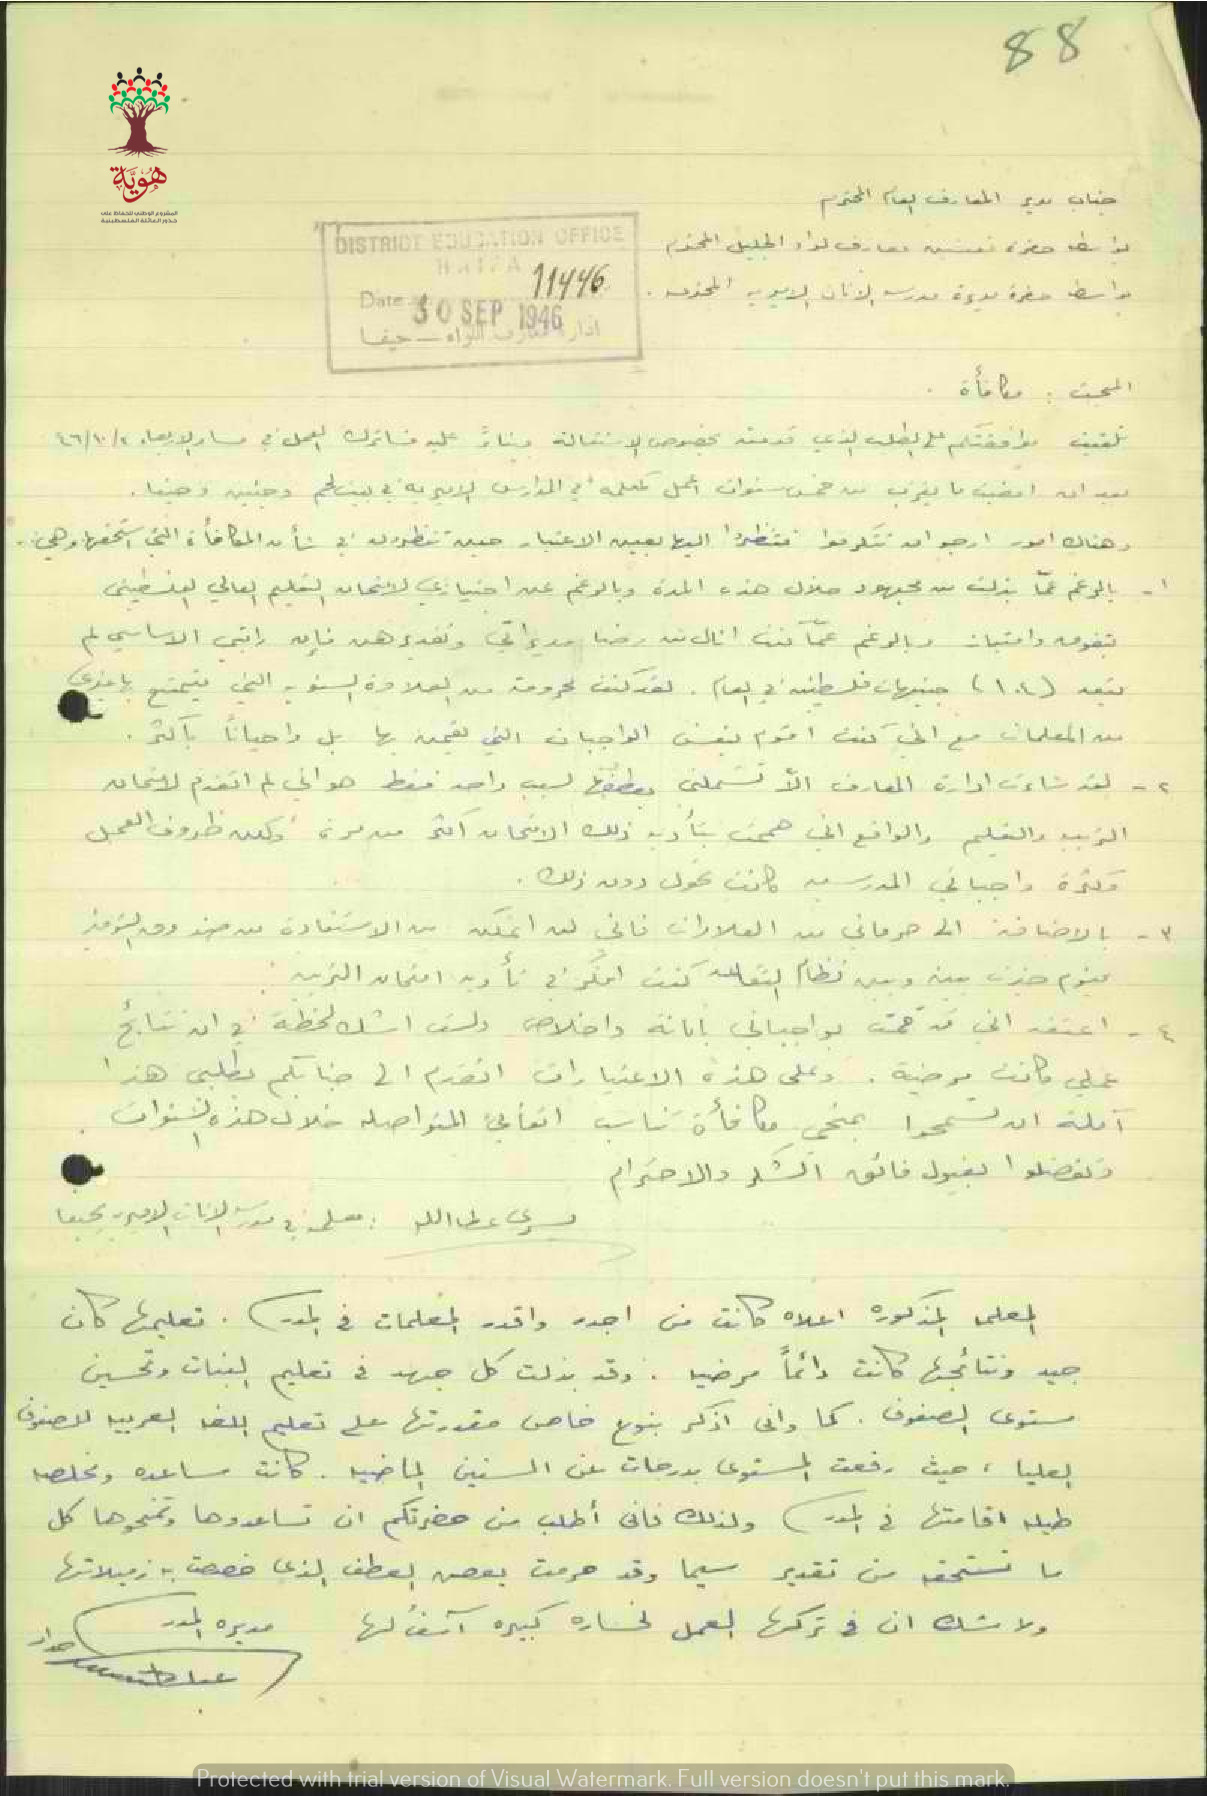 88
هوية
المشروع الوطني للحفاظ على
جذور العائلة الفلسطينية
جناب مدير المعارف العام المحترم
بواسطة حضرة مفتش معارف لواء الجليل المحترم
بواسطة حضرة مديرة مدرسة الاناث الاميرية المحترمة .
DISTRICT EDUCATION OFFICE
HAIFA
11446
Date
30 SEP 1946
ادارة معارف اللواء — حيفا
المبحث : مكافأة .
تلقيت موافقتكم على الطلب الذي قدمته بخصوص الاستقالة وبناءً عليه فسأترك العمل في مساء الاربعاء ٤٦/١٠/٢
بعد ان امضيت ما يقرب من خمس سنوات اعمل كمعلمة في المدارس الاميرية في بيت لحم وجنين وحيفا .
وهناك امور ارجو ان تتكرموا فتنظروا اليها بعين الاعتبار حين تنظرون في شأن المكافأة التي استحقها وهي :
١- بالرغم عمّا بذلت من مجهود خلال هذه المدة وبالرغم عن اجتيازي لامتحان التعليم العالي الفلسطيني
بتفوق وامتياز وبالرغم عمّا كنت انال من رضا مديراتي وتقديرهن فإن راتبي الاساسي لم
يتعد (١٠٤) جنيهات فلسطينية في العام . لقد كنت محرومة من العلاوة السنوية التي يتمتع بها غيري
من المعلمات مع اني كنت اقوم بنفس الواجبات التي يقمن بها بل واحياناً بأكثر .
٢- لقد شاءت ادارة المعارف الاّ تشملني بعطفها لسبب واحد فقط هو اني لم اتقدم لامتحان
التربية والتعليم والواقع اني هممت بتأدية ذلك الامتحان اكثر من مرة ولكن ظروف العمل
وكثرة واجباتي المدرسية كانت تحول دون ذلك .
٣- بالاضافة الى حرماني من العلاوات فاني لن اتمكن من الاستفادة من صندوق التوفير
كنت افكر في تأدية امتحان التربية .
٤- اعتقد اني قد قمت بواجباتي بامانة واخلاص ولست اشك لحظة في ان نتائج
عملي كانت مرضية . وعلى هذه الاعتبارات اتقدم الى جنابكم بطلبي هذا
آملة ان تسمحوا بمنحي مكافأة تناسب اتعابي المتواصلة خلال هذه السنوات .
وتفضلوا بقبول فائق الشكر والاحترام
يسرى عطاالله : معلمة في مدرسة الاناث الاميرية بحيفا
المعلمة المذكورة اعلاه كانت من اجدر واقدر المعلمات في المدرسة . تعليمها كان
جيد ونتائجها كانت دائماً مرضية . وقد بذلت كل جهد في تعليم البنات وتحسين
مستوى الصفوف . كما واني اذكر بنوع خاص مقدرتها على تعليم اللغة العربية للصفوف
العليا ، حيث رفعت المستوى بدرجات عن السنين الماضية . كانت مساعده ومخلصه
طيلة اقامتها في المدرسة ولذلك فاني أطلب من حضرتكم ان تساعدوها وتمنحوها كل
ما تستحقه من تقدير سيما وقد حرمت بعض العطف الذي خصصت به زميلاتها
ولا شك ان في تركها العمل لخساره كبيره آسف لها
مديره المدرسة
Protected with trial version of Visual Watermark. Full version doesn't put this mark.